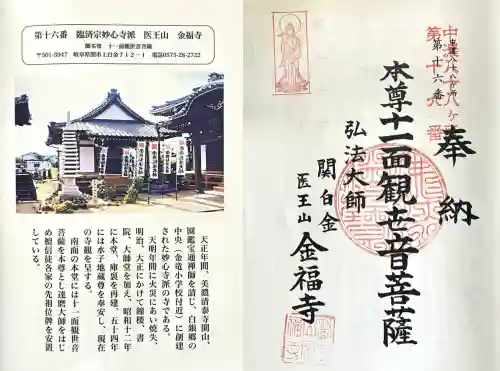 第十六番　臨済宗妙心寺派　医王山　金福寺
御本尊　十一面観世音菩薩
〒501-3947　岐阜県関市上白金712-1　電話0575-28-2722
天正年間、美濃清泰寺開山、
国鑑宝通禅師を請じ、白銀郷の
中央（金竜小学校付近）に創建
された妙心寺派の寺である。
天明年間に火災にあい焼失、
明治、大正にかけて鐘楼、書
院、大師堂を加え、昭和十二年
に本堂、庫裏を再建、五十四年
には水子地蔵尊を奉安し、現在
の寺観を呈する。
南面の本堂には十一面観世音
菩薩を本尊とし達磨大師をはじ
め檀信徒各家の先祖位牌を安置
している。
第十六番
奉納
本尊十一面観世音菩薩
弘法大師
関白金
医王山
金福寺